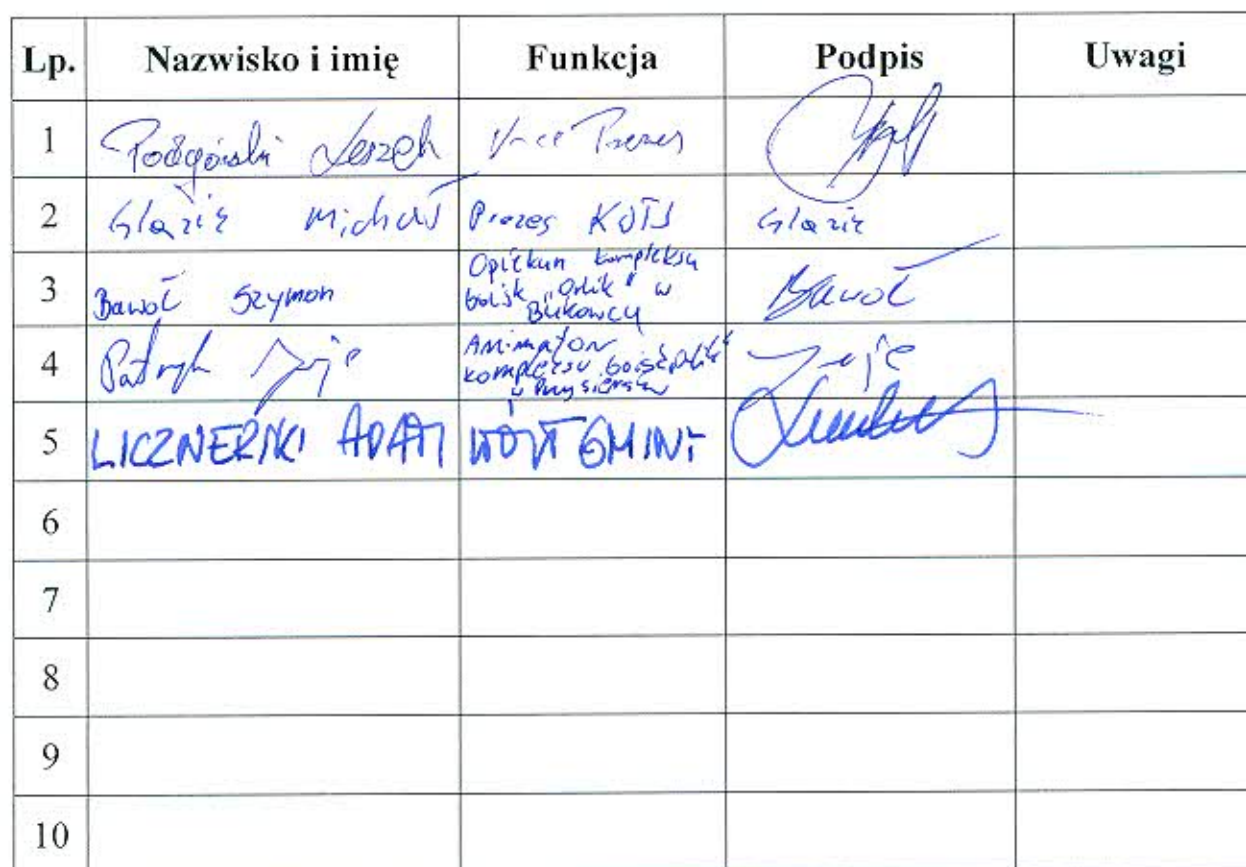 Lp. Nazwisko i imię Funkcja Podpis Uwagi
1 Podgórski Leszek Vice Prezes
2 Glazik Michał Prezes KOTS Glazik
3 Bawoł Szymon Opiekun kompleksu boisk „Orlik" w Bukowcu Bawoł
4 Patryk Animator kompleksu boisk
5 LICZNERSKI ADAM WÓJT GMINY
6
7
8
9
10